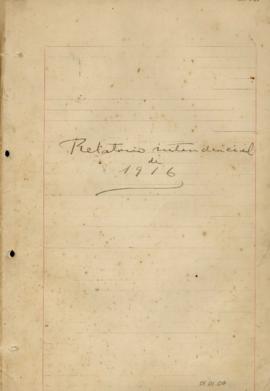 Relatorio intendencial
de
1916